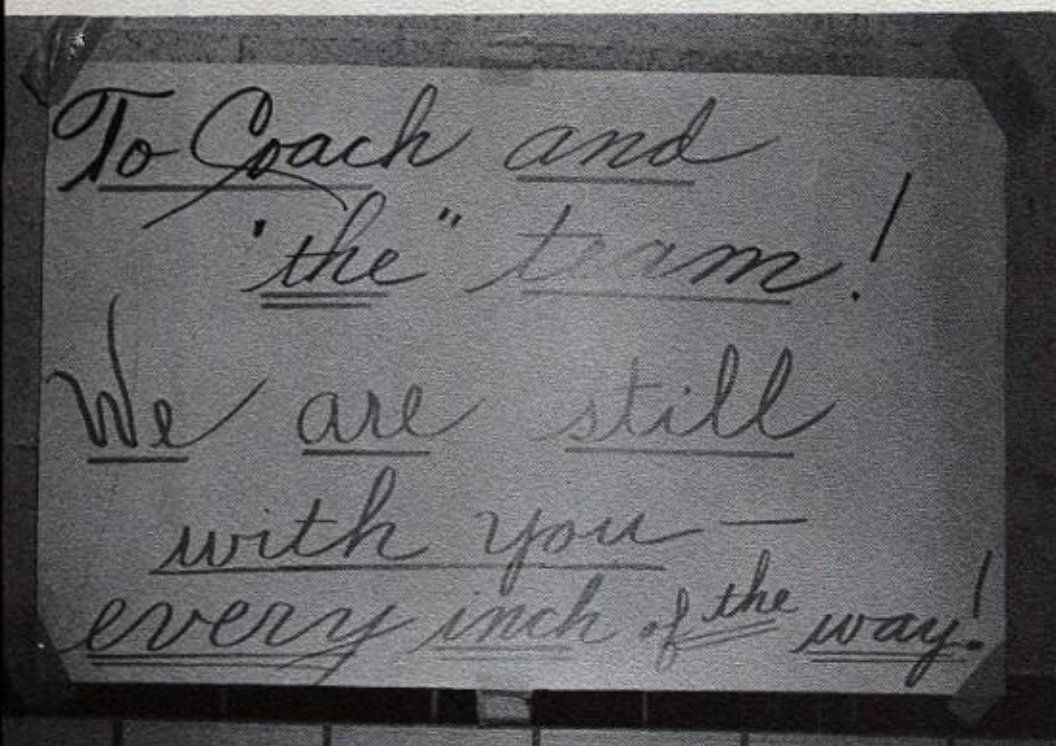 To Coach and
"the" team!
We are still
with you —
every inch of the way!